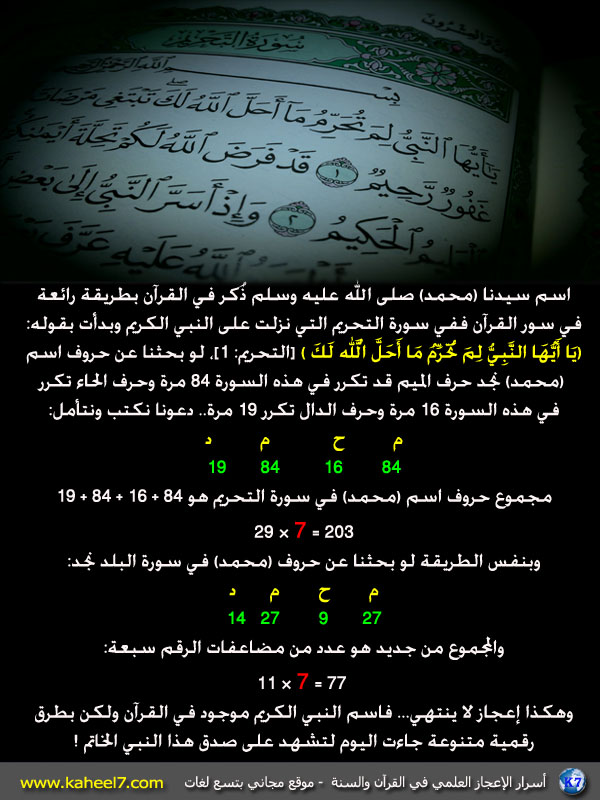 سُورَةُ التَّحْرِيمِ
يَٰٓأَيُّهَا ٱلنَّبِىُّ لِمَ تُحَرِّمُ مَآ أَحَلَّ ٱللَّهُ لَكَ تَبْتَغِى مَرْضَاتَ
غَفُورٌ رَّحِيمٌ ١ قَدْ فَرَضَ ٱللَّهُ لَكُمْ تَحِلَّةَ أَيْمَٰنِكُمْ
ٱلْحَكِيمُ ٢ وَإِذْ أَسَرَّ ٱلنَّبِىُّ إِلَىٰ بَعْضِ
ٱللَّهُ عَلَيْهِ عَرَّفَ
اسم سيدنا (محمد) صلى الله عليه وسلم ذُكر في القرآن بطريقة رائعة
في سور القرآن ففي سورة التحريم التي نزلت على النبي الكريم وبدأت بقوله:
(يَا أَيُّهَا النَّبِيُّ لِمَ تُحَرِّمُ مَا أَحَلَّ اللَّهُ لَكَ ) [التحريم: 1]، لو بحثنا عن حروف اسم
(محمد) نجد حرف الميم قد تكرر في هذه السورة 84 مرة وحرف الحاء تكرر
في هذه السورة 16 مرة وحرف الدال تكرر 19 مرة.. دعونا نكتب ونتأمل:
م ح م د
84 16 84 19
مجموع حروف اسم (محمد) في سورة التحريم هو 84 + 16 + 84 + 19
203 = 7 × 29
وبنفس الطريقة لو بحثنا عن حروف (محمد) في سورة البلد نجد:
م ح م د
27 9 27 14
والمجموع من جديد هو عدد من مضاعفات الرقم سبعة:
77 = 7 × 11
وهكذا إعجاز لا ينتهي... فاسم النبي الكريم موجود في القرآن ولكن بطرق
رقمية متنوعة جاءت اليوم لتشهد على صدق هذا النبي الخاتم !
K7 أسرار الإعجاز العلمي في القرآن والسنة - موقع مجاني بتسع لغات www.kaheel7.com